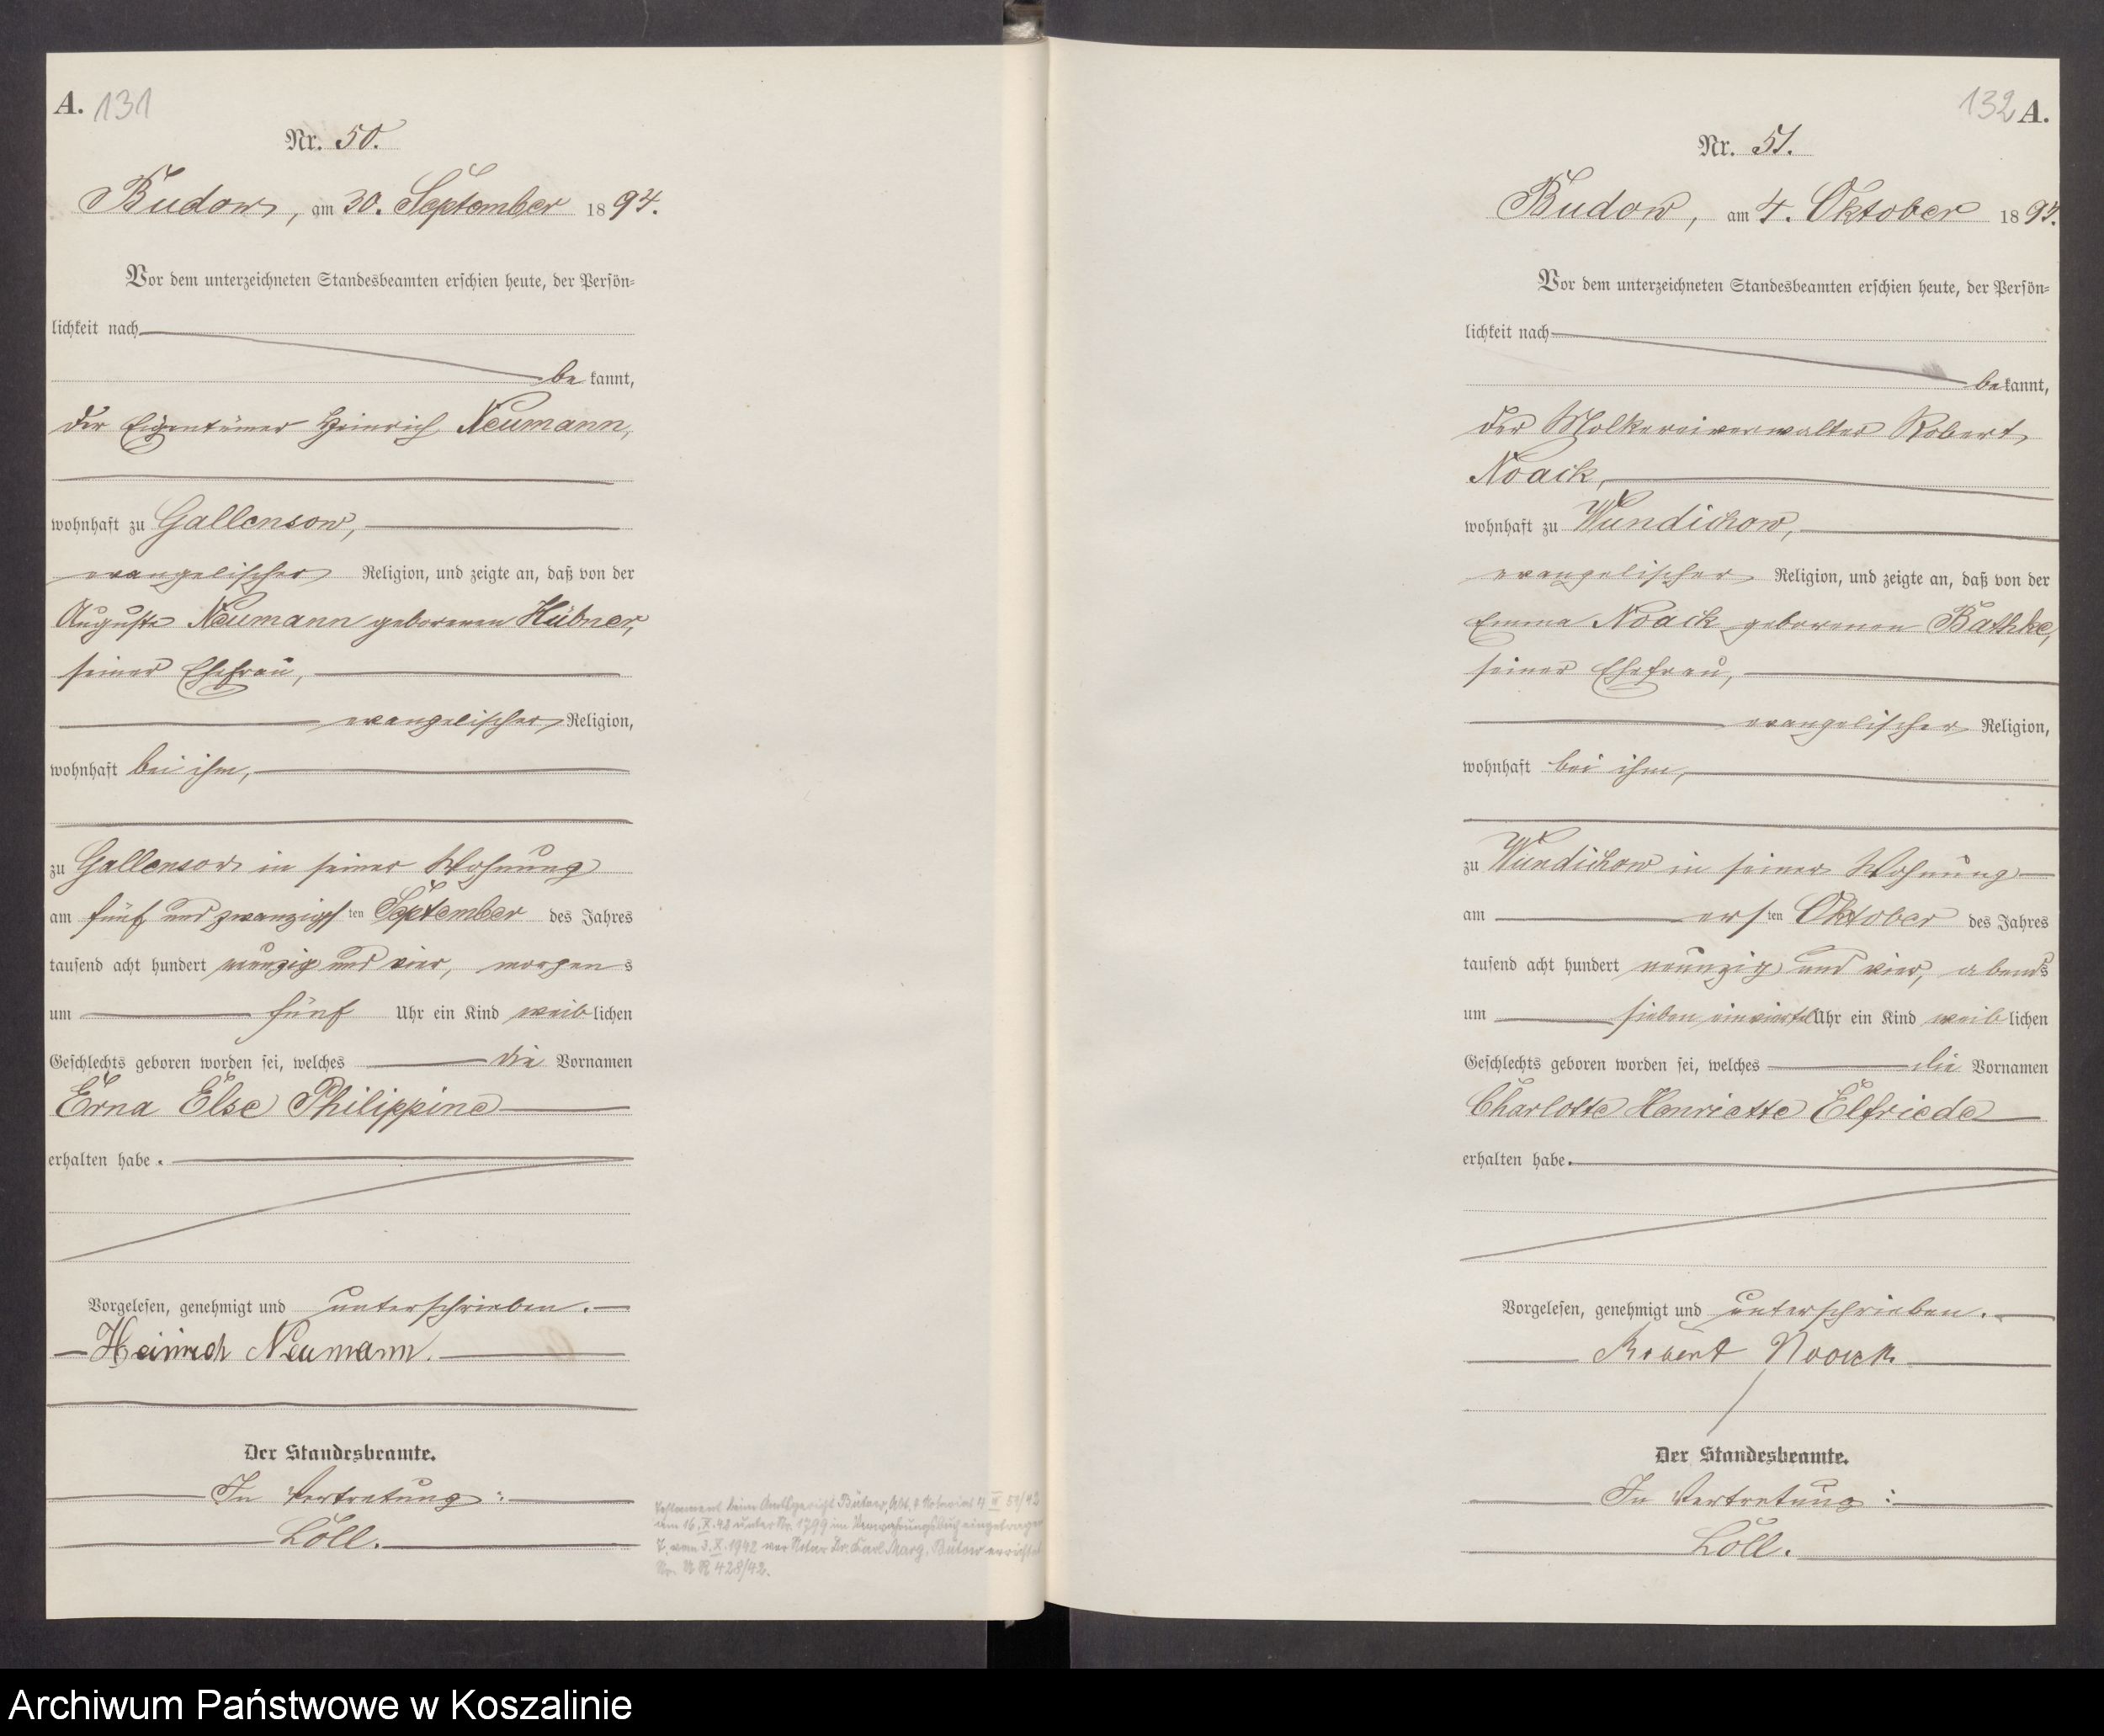 A. 131
Nr. 50.
Budow, am 30. September 1894.
Vor dem unterzeichneten Standesbeamten erschien heute, der Persön-
lichkeit nach
be kannt,
der Eigentümer Heinrich Neumann,
wohnhaft zu Gallensow,
evangelischer Religion, und zeigte an, daß von der
Auguste Neumann geborenen Hübner,
seiner Ehefrau,
evangelischer Religion,
wohnhaft bei ihm,
zu Gallensow in seiner Wohnung
am fünf und zwanzigsten September des Jahres
tausend acht hundert neunzig und vier, morgens
um fünf Uhr ein Kind weiblichen
Geschlechts geboren worden sei, welches die Vornamen
Erna Else Philippine
erhalten habe.
Vorgelesen, genehmigt und unterschrieben.
Heinrich Neumann.
Der Standesbeamte.
In Vertretung:
Löll.
Testament beim Amtsgericht Bütow, Abt. 4
am 16. X. 42 unter Nr. 1799 im Verwahrungsbuch eingetragen
T. vom 3. X. 1942 vor Notar Dr. Karl Marg. Bütow errichtet
Nr. U R 428/42.
132 A.
Nr. 51.
Budow, am 4. Oktober 1894.
Vor dem unterzeichneten Standesbeamten erschien heute, der Persön-
lichkeit nach
bekannt,
der Molkereiverwalter Robert
Noack,
wohnhaft zu Wundichow,
evangelischer Religion, und zeigte an, daß von der
Emma Noack geborenen Bathke,
seiner Ehefrau,
evangelischer Religion,
wohnhaft bei ihm,
zu Wundichow in seiner Wohnung
am ersten Oktober des Jahres
tausend acht hundert neunzig und vier, abends
um sieben einviertel Uhr ein Kind weiblichen
Geschlechts geboren worden sei, welches die Vornamen
Charlotte Henriette Elfriede
erhalten habe.
Vorgelesen, genehmigt und unterschrieben.
Robert Noack
Der Standesbeamte.
In Vertretung:
Löll.
Archiwum Państwowe w Koszalinie